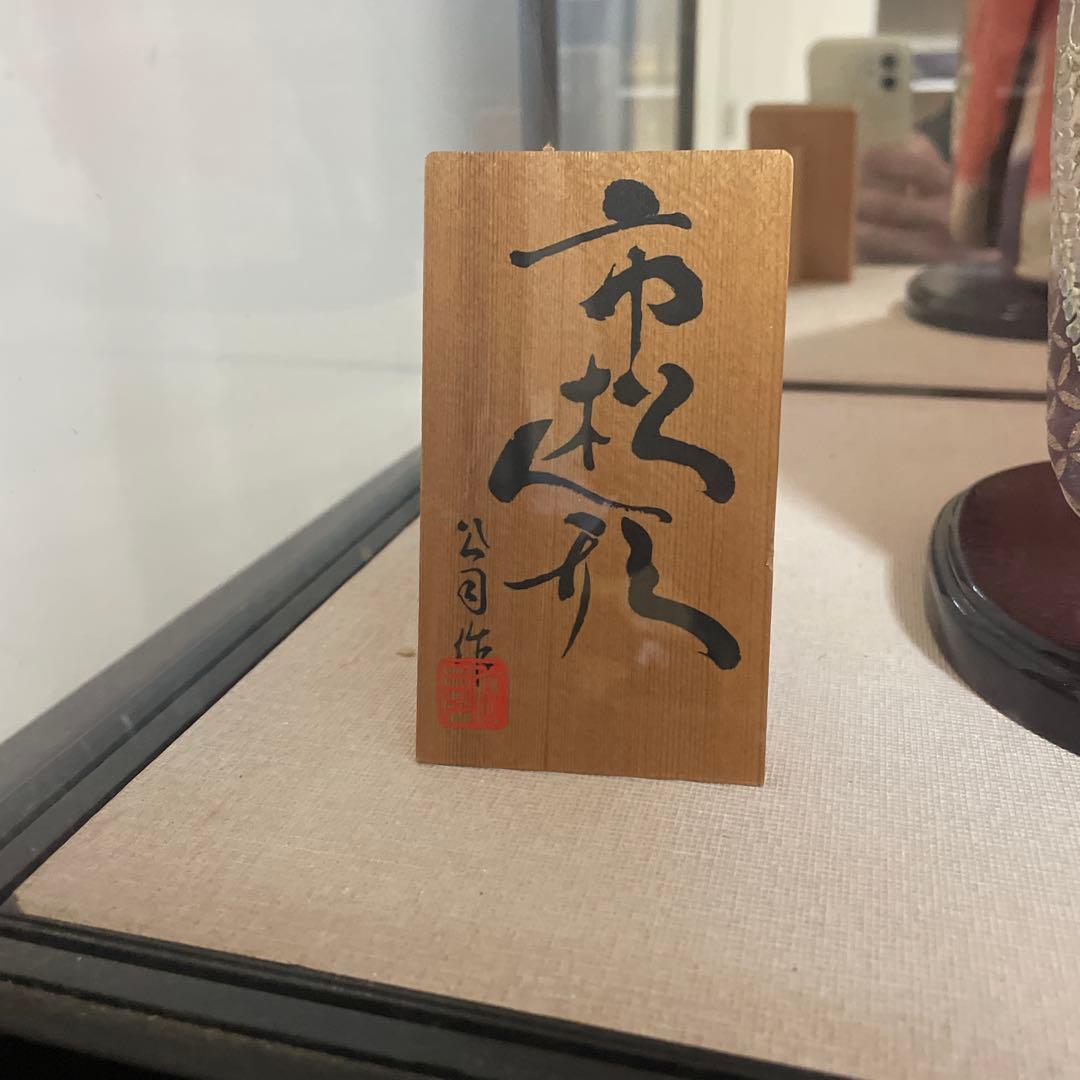 市松人形
公司作